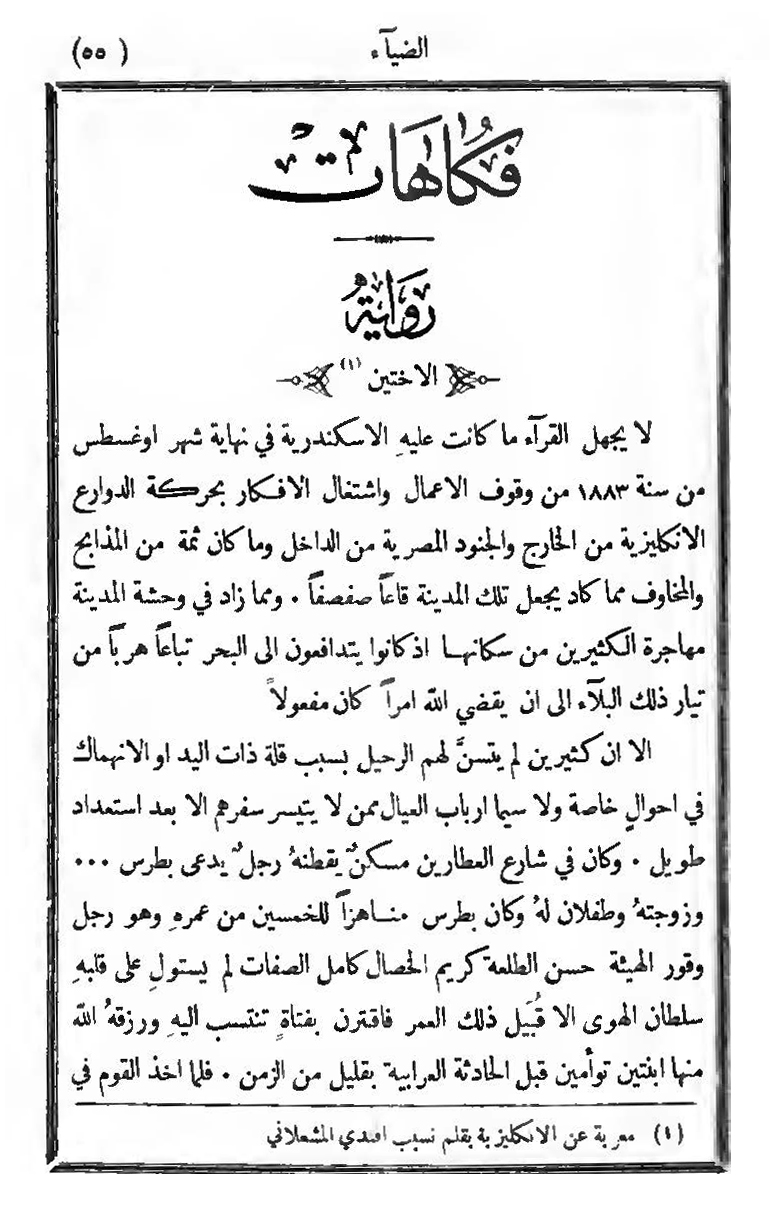 الضيآء (٥٥)
فُكَاهَات
رِوَايَةُ
الاختين (١)
لا يجهل القرآء ما كانت عليهِ الاسكندرية في نهاية شهر اوغسطس
من سنة ١٨٨٣ من وقوف الاعمال واشتغال الافكار بحركة الدوارع
الانكليزية من الخارج والجنود المصرية من الداخل وما كان ثمة من المذابح
والمخاوف مما كاد يجعل تلك المدينة قاعاً صفصفاً . ومما زاد في وحشة المدينة
مهاجرة الكثيرين من سكانها اذ كانوا يتدافعون الى البحر تباعاً هرباً من
تيار ذلك البلآء الى ان يقضي الله امراً كان مفعولاً
الا ان كثيرين لم يتسنَّ لهم الرحيل بسبب قلة ذات اليد او الانهماك
في احوالٍ خاصة ولا سيما ارباب العيال ممن لا يتيسر سفرهم الا بعد استعداد
طويل . وكان في شارع العطارين مسكنٌ يقطنهُ رجلٌ يدعى بطرس ...
وزوجتهُ وطفلان لهُ وكان بطرس مناهزاً للخمسين من عمرهِ وهو رجل
وقور الهيئة حسن الطلعة كريم الخصال كامل الصفات لم يستولِ على قلبهِ
سلطان الهوى الا قُبَيل ذلك العمر فاقترن بفتاةٍ تنتسب اليهِ ورزقهُ الله
منها ابنتين توأمين قبل الحادثة العرابية بقليل من الزمن . فلما اخذ القوم في
(١) معربة عن الانكليزية بقلم نسيب افندي المشعلاني